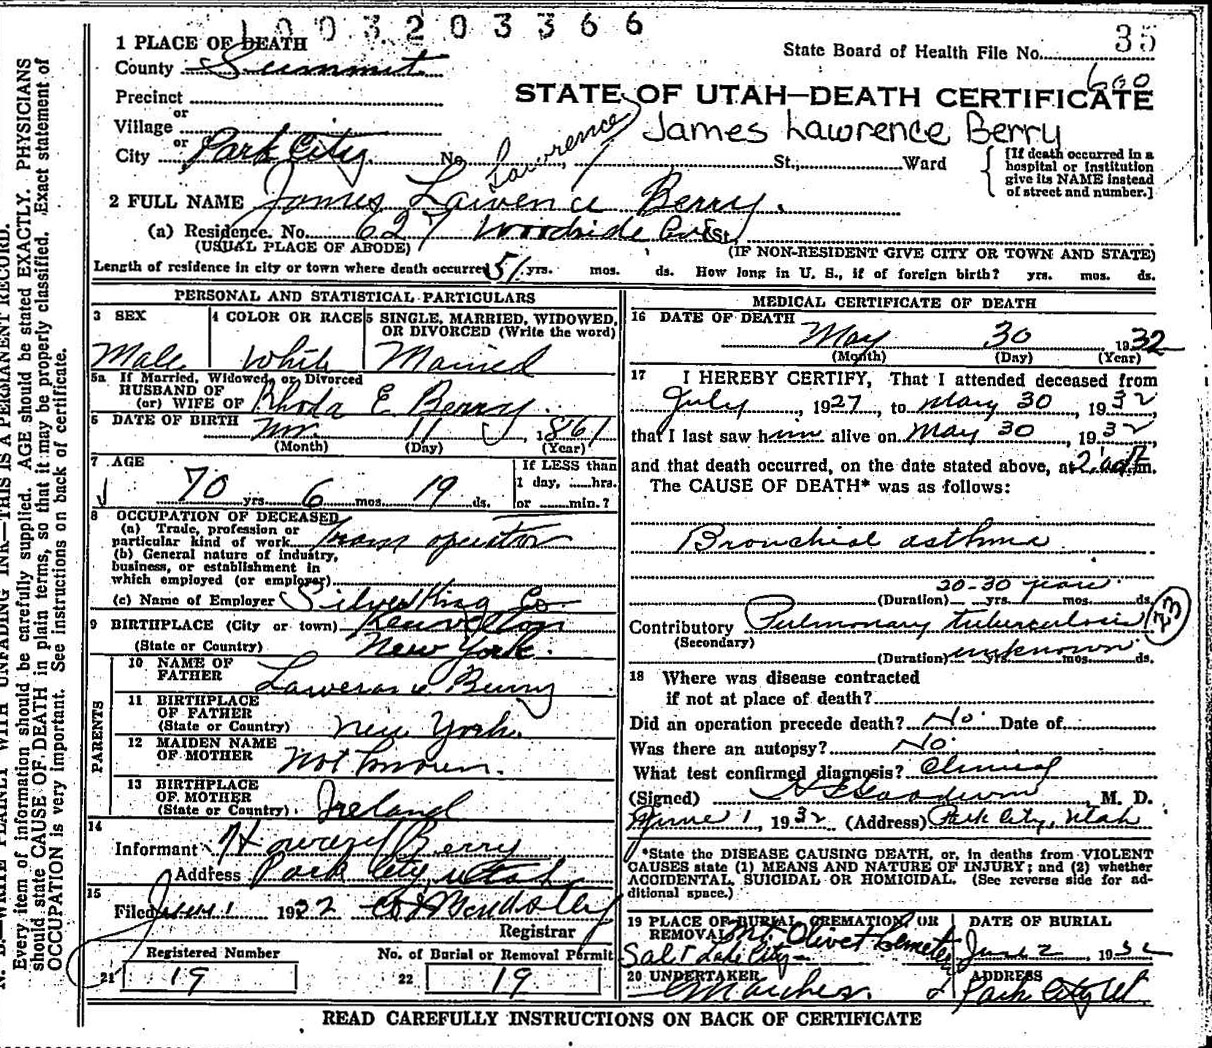 1003203366
35
1 PLACE OF DEATH
State Board of Health File No.
County Summit
600
Precinct
STATE OF UTAH—DEATH CERTIFICATE
or
Village
Lawrence
James Lawrence Berry
or
City Park City No. St., Ward
[If death occurred in a hospital or institution give its NAME instead of street and number.]
2 FULL NAME James Lawrence Berry.
(a) Residence. No. 627 Woodside Ave St.
(USUAL PLACE OF ABODE) (IF NON-RESIDENT GIVE CITY OR TOWN AND STATE)
Length of residence in city or town where death occurred 51 yrs. mos. ds. How long in U. S., if of foreign birth? yrs. mos. ds.
PERSONAL AND STATISTICAL PARTICULARS
3 SEX 4 COLOR OR RACE 5 SINGLE, MARRIED, WIDOWED, OR DIVORCED (Write the word)
Male White Married
5a If Married, Widowed, or Divorced
HUSBAND OF
(or) WIFE OF Rhoda E Berry
6 DATE OF BIRTH Nov. 11 1861
(Month) (Day) (Year)
7 AGE
If LESS than
1 day, hrs.
70 yrs. 6 mos. 19 ds. or min.?
8 OCCUPATION OF DECEASED
(a) Trade, profession or
particular kind of work Tram operator
(b) General nature of industry,
business, or establishment in
which employed (or employer)
(c) Name of Employer Silver King Co
9 BIRTHPLACE (City or town)
(State or Country) New York.
PARENTS
10 NAME OF
FATHER Berry
11 BIRTHPLACE
OF FATHER
(State or Country) New York.
12 MAIDEN NAME
OF MOTHER Not known.
13 BIRTHPLACE
OF MOTHER
(State or Country) Ireland
14
Informant Berry
Address Park City, Utah
15
Filed June 1 1932
Registrar
Registered Number No. of Burial or Removal Permit
21 19 22 19
MEDICAL CERTIFICATE OF DEATH
16 DATE OF DEATH
May 30 1932
(Month) (Day) (Year)
17 I HEREBY CERTIFY, That I attended deceased from
July, 1927, to May 30, 1932,
that I last saw him alive on May 30, 1932,
and that death occurred, on the date stated above, at m.
The CAUSE OF DEATH* was as follows:
Bronchial asthma
20-30 years
(Duration) yrs. mos. ds.
Contributory Pulmonary tuberculosis
23
(Secondary)
(Duration) unknown yrs. mos. ds.
18 Where was disease contracted
if not at place of death?
Did an operation precede death? No. Date of
Was there an autopsy? No.
What test confirmed diagnosis? Clinical
(Signed) Goodwin M. D.
June 1, 1932 (Address) Park City, Utah
*State the DISEASE CAUSING DEATH, or, in deaths from VIOLENT
CAUSES state (1) MEANS AND NATURE OF INJURY; and (2) whether
ACCIDENTAL, SUICIDAL OR HOMICIDAL. (See reverse side for ad-
ditional space.)
19 PLACE OF BURIAL, CREMATION, OR DATE OF BURIAL
REMOVAL Mt Olivet Cemetery
Salt Lake City June 2 1932
20 UNDERTAKER ADDRESS
Park City Ut
READ CAREFULLY INSTRUCTIONS ON BACK OF CERTIFICATE
N. B.—WRITE PLAINLY WITH UNFADING INK—THIS IS A PERMANENT RECORD.
Every item of information should be carefully supplied. AGE should be stated EXACTLY. PHYSICIANS
should state CAUSE OF DEATH in plain terms, so that it may be properly classified. Exact statement of
OCCUPATION is very important. See instructions on back of certificate.